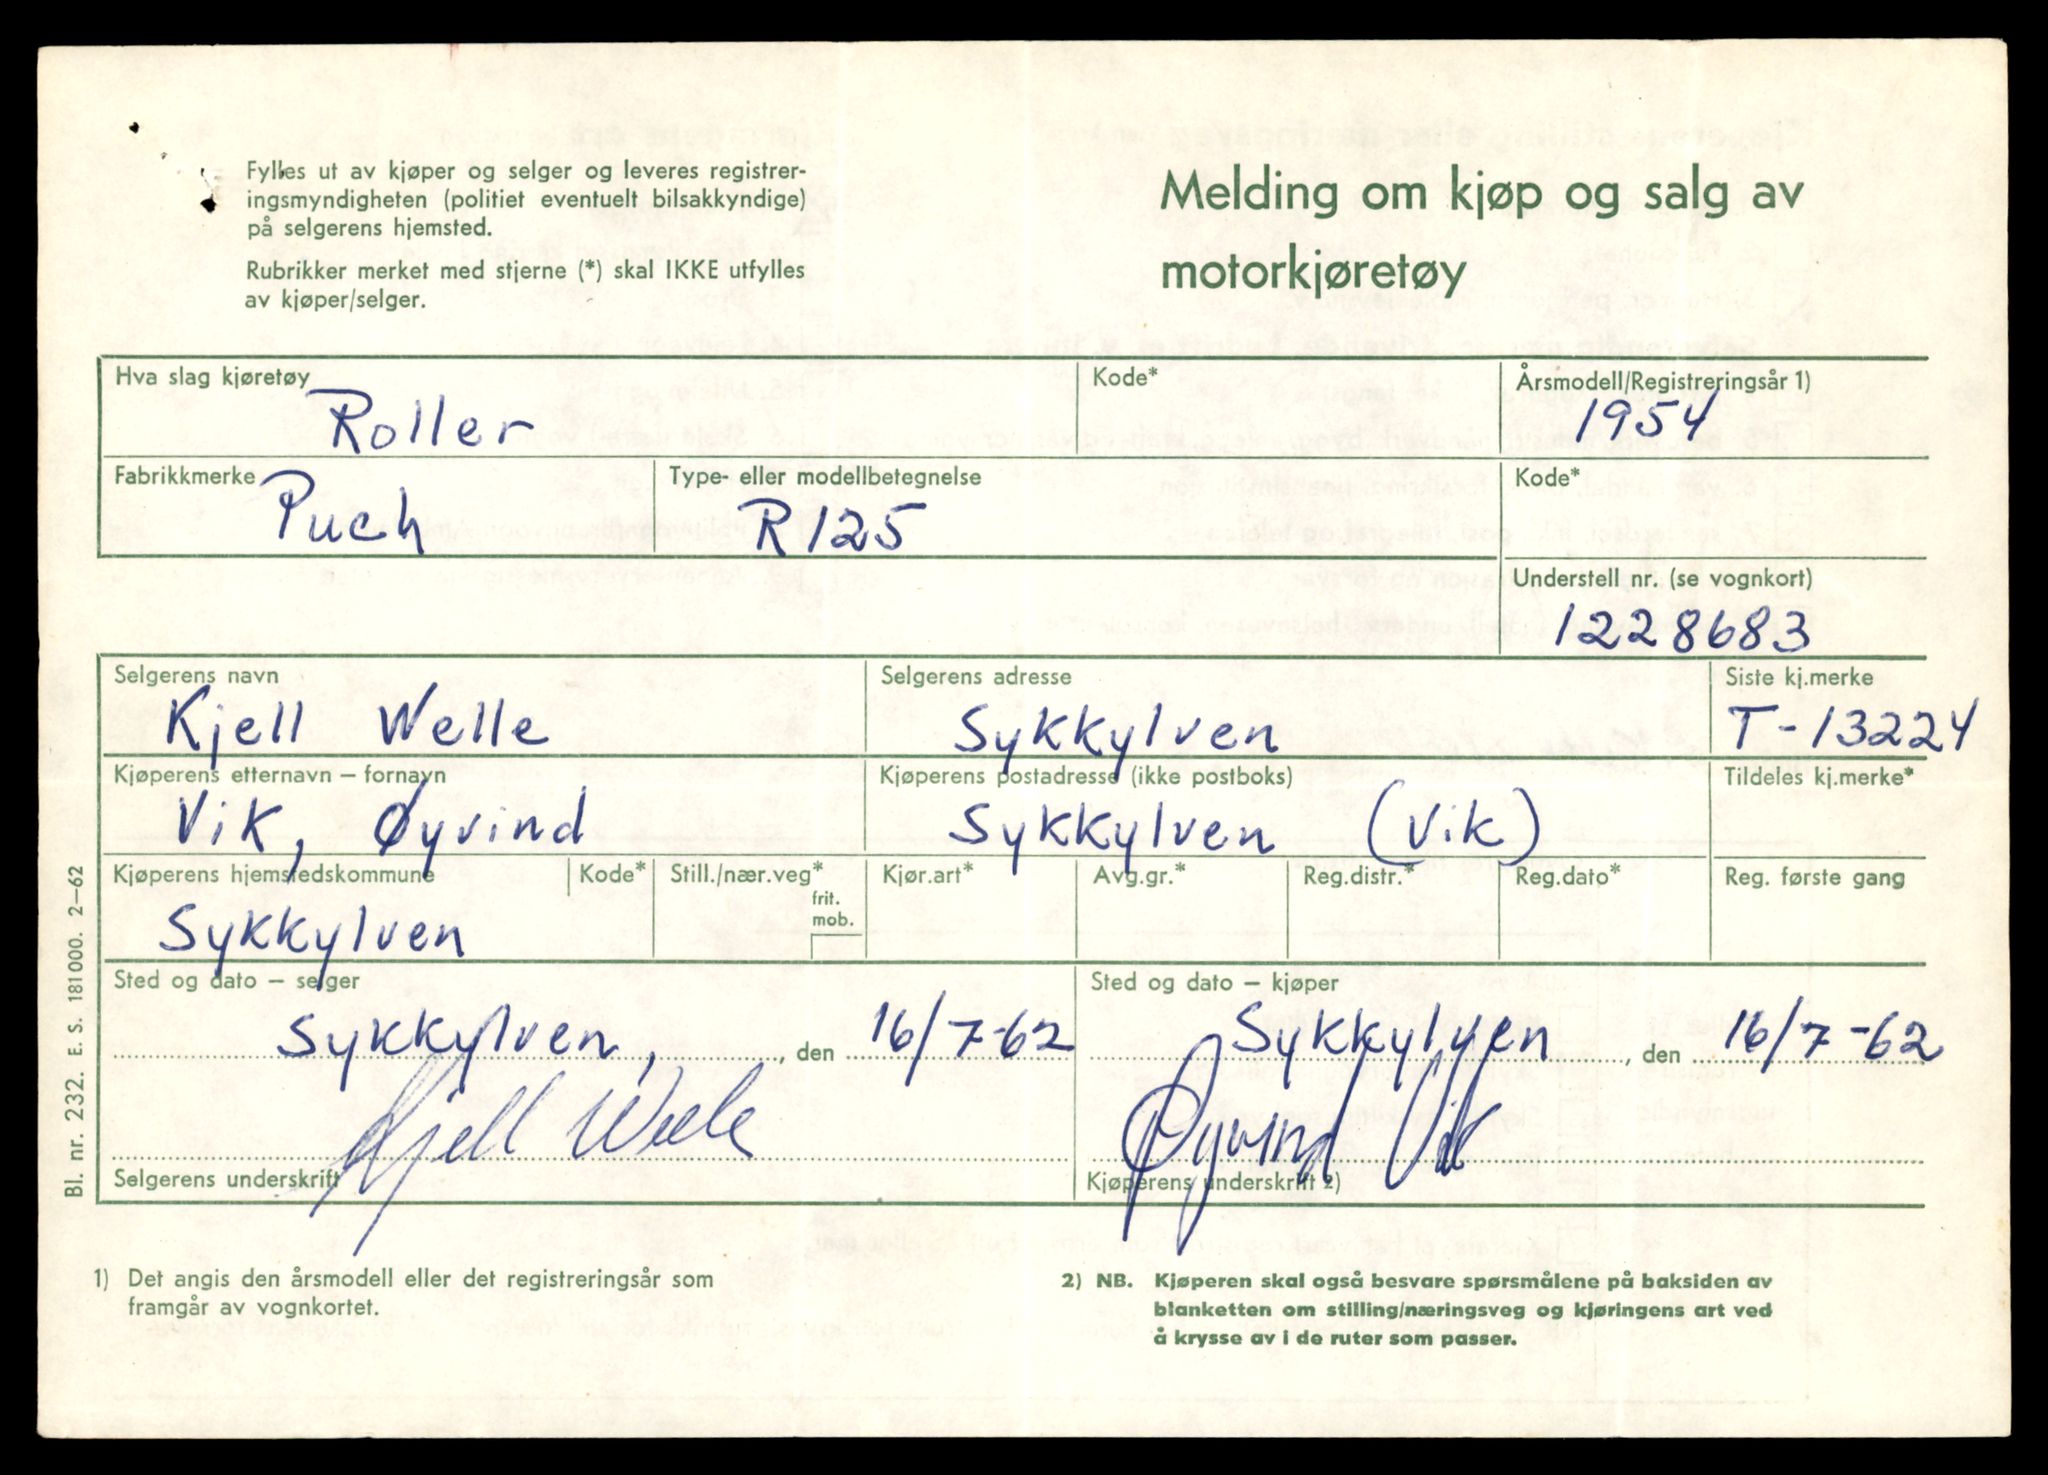 Fylles ut av kjøper og selger og leveres registrer-
ingsmyndigheten (politiet eventuelt bilsakkyndige)
på selgerens hjemsted.
Rubrikker merket med stjerne (*) skal IKKE utfylles
av kjøper/selger.
Melding om kjøp og salg av
motorkjøretøy
Hva slag kjøretøy
Roller
Kode*
Årsmodell/Registreringsår 1)
1954
Fabrikkmerke
Puch
Type- eller modellbetegnelse
R125
Kode*
Understell nr. (se vognkort)
1228683
Selgerens navn
Kjell Welle
Selgerens adresse
Sykkylven
Siste kj.merke
T-13224
Kjøperens etternavn – fornavn
Vik, Øyvind
Kjøperens postadresse (ikke postboks)
Sykkylven (Vik)
Tildeles kj.merke*
Kjøperens hjemstedskommune
Sykkylven
Kode*
Still./nær.veg*
frit.
mob.
Kjør.art*
Avg.gr.*
Reg.distr.*
Reg.dato*
Reg. første gang
Sted og dato – selger
Sykkylven, , den 16/7-62
Kjell Welle
Selgerens underskrift
Sted og dato – kjøper
Sykkylven , den 16/7-62
Øyvind Vik
Kjøperens underskrift 2)
Bl. nr. 232. E. S. 181000. 2–62
1) Det angis den årsmodell eller det registreringsår som
framgår av vognkortet.
2) NB. Kjøperen skal også besvare spørsmålene på baksiden av
blanketten om stilling/næringsveg og kjøringens art ved
å krysse av i de ruter som passer.